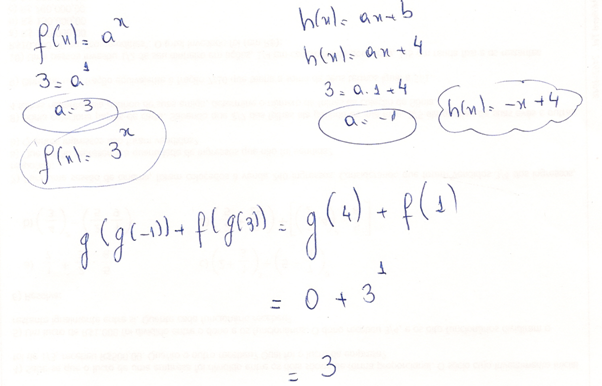 f(x) = a^x
3 = a^1
a = 3
f(x) = 3^x
h(x) = ax + b
h(x) = ax + 4
3 = a.1 + 4
a = -1
h(x) = -x + 4
g(g(-1)) + f(g(3)) = g(4) + f(1)
= 0 + 3^1
= 3